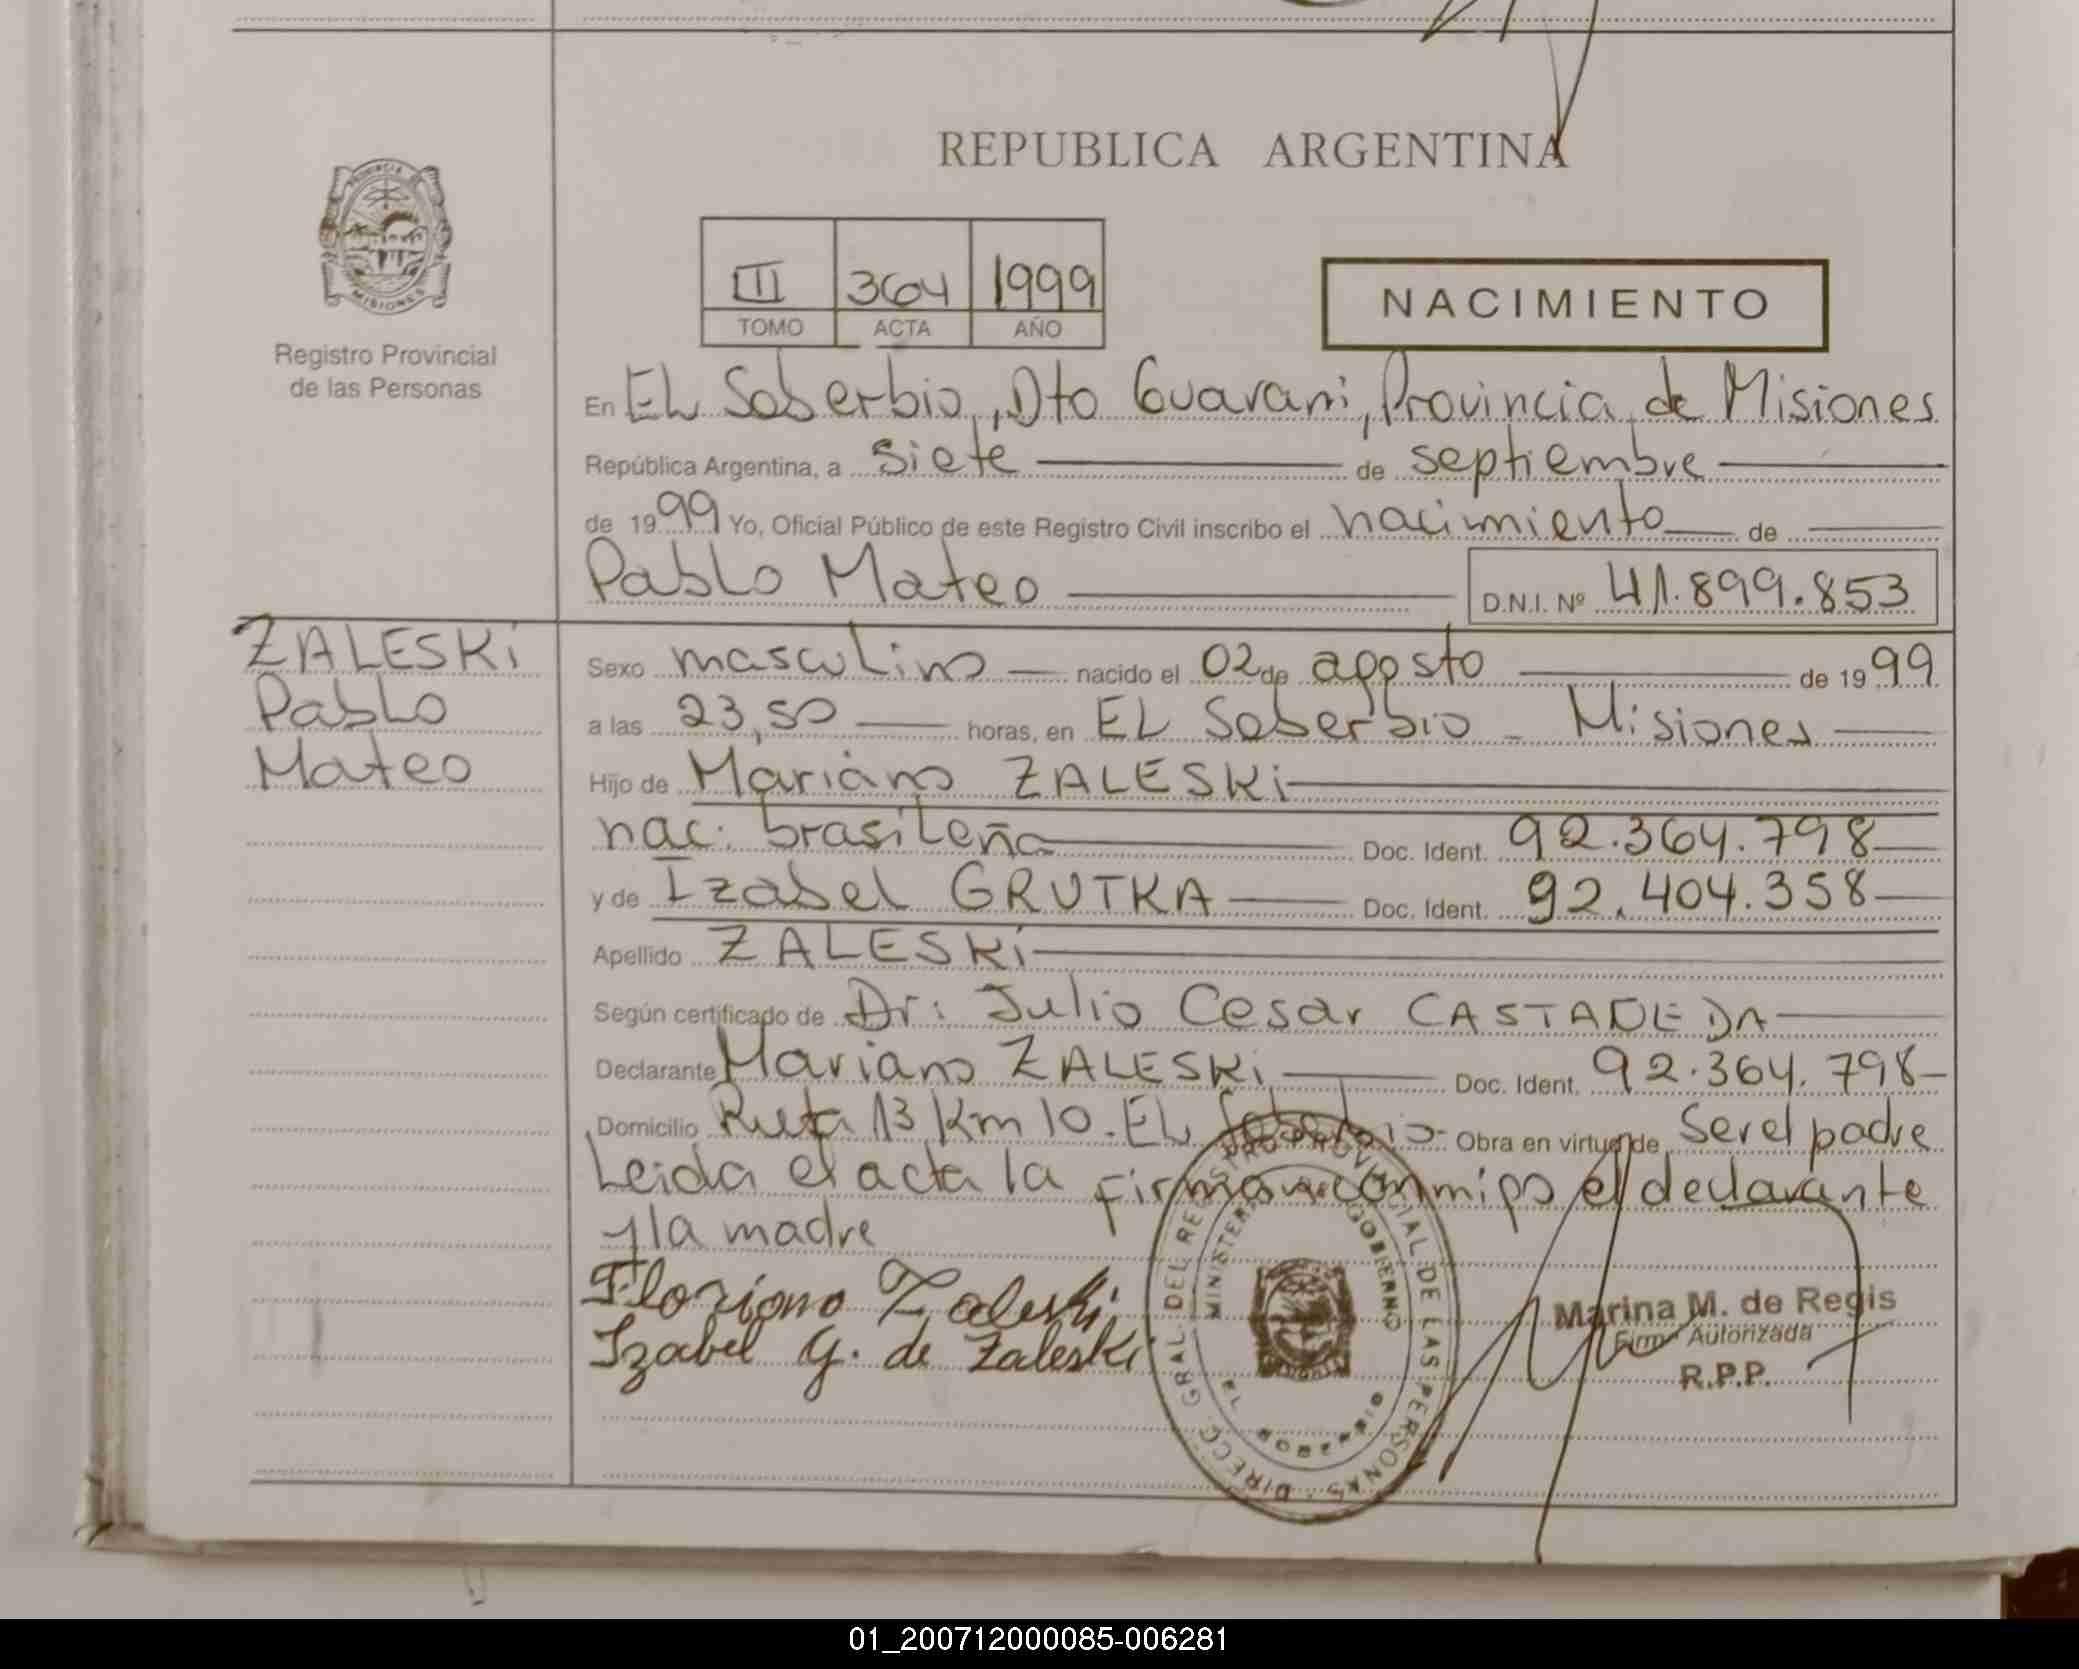 REPUBLICA ARGENTINA
PROVINCIA
MISIONES
Registro Provincial
de las Personas
III 364 1999
TOMO ACTA AÑO
NACIMIENTO
En EL Soberbio, Dto Guarani, Provincia de Misiones
República Argentina, a siete de septiembre
de 1999 Yo, Oficial Público de este Registro Civil inscribo el nacimiento de
Pablo Mateo D.N.I. Nº 41.899.853
ZALESKi
Pablo
Mateo
Sexo masculino nacido el 02 de agosto de 1999
a las 23,50 horas, en EL Soberbio - Misiones
Hijo de Mariano ZALESKi
nac. brasileña Doc. Ident. 92.364.798
y de Izabel GRUTKA Doc. Ident. 92.404.358
Apellido ZALESKi
Según certificado de Dr: Julio Cesar CASTAÑEDA
Declarante Mariano ZALESKi Doc. Ident. 92.364.798
Domicilio Ruta 13 Km 10. EL Soberbio - Obra en virtud de Ser el padre
Leida el acta la firman conmigo el declarante
y la madre
Floriano Zaleski
Izabel G. de Zaleski
DIRECC. GRAL. DEL REGISTRO PROVINCIAL DE LAS PERSONAS
MINISTERIO GOBIERNO
EL SOBERBIO
Marina M. de Regis
Firma Autorizada
R.P.P.
01_200712000085-006281